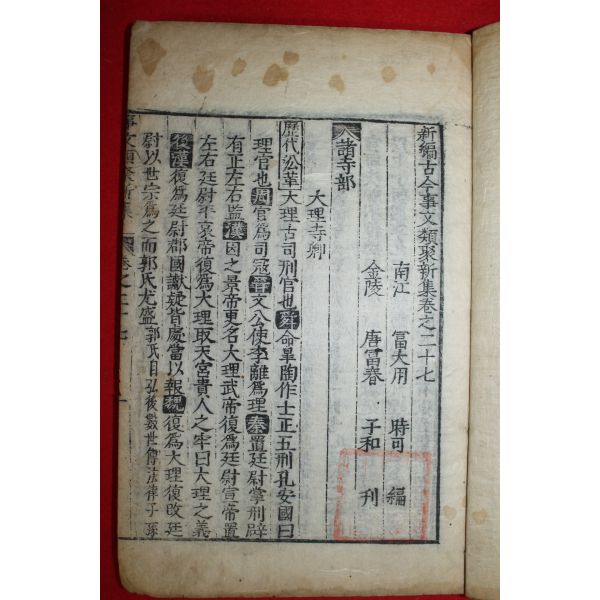 新編古今事文類聚新集卷之二十七
南江 冨大用 時可 編
金陵 唐冨春 子和 刊
諸寺部
大理寺卿
歷代沿革 大理古司刑官也舜命皐陶作士正五刑孔安國曰
理官也周官爲司冦晉文公使李離爲理秦置廷尉掌刑辟
有正左右監漢因之景帝更名大理武帝復爲廷尉宣帝置
左右廷尉平哀帝復爲大理取天官貴人之牢曰大理之義
後漢復爲廷尉郡國讞疑皆處當以報魏復爲大理復改廷
尉以世宗爲之而郭氏尤盛郭氏自弘後數世傳法律子孫
事文類聚新集 卷之二十七